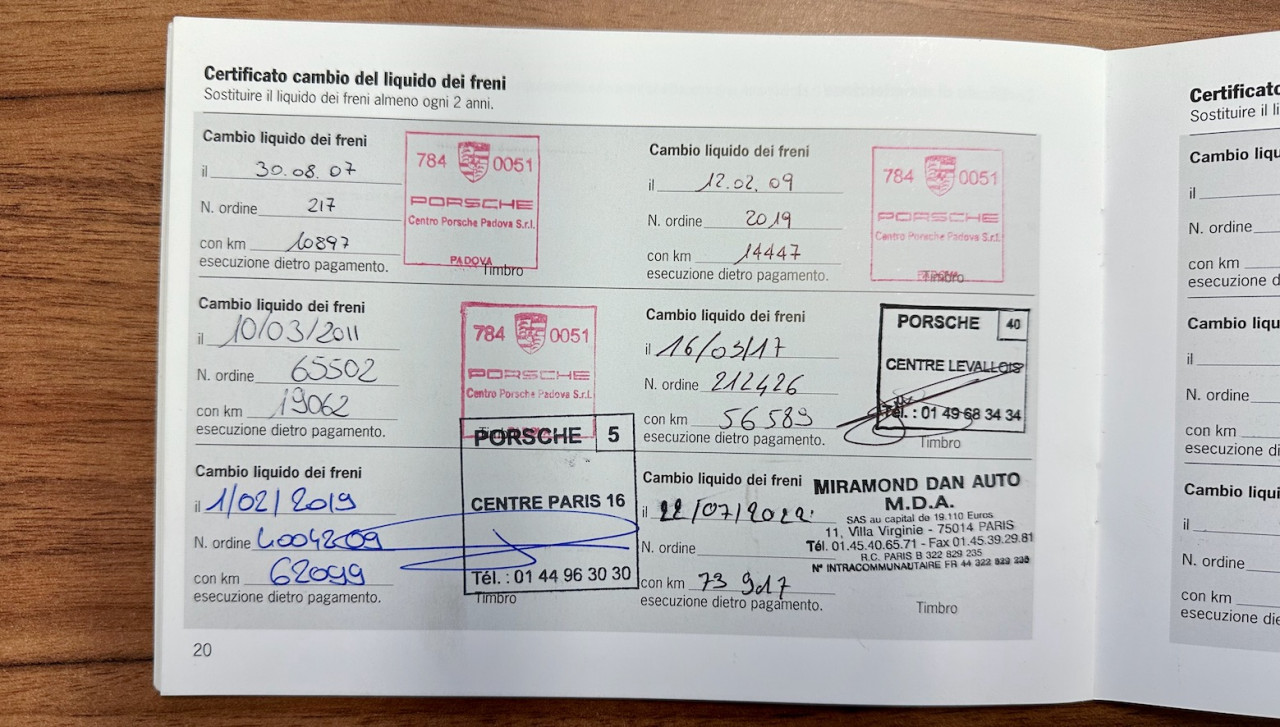 Certificato cambio del liquido dei freni
Sostituire il liquido dei freni almeno ogni 2 anni.
Cambio liquido dei freni
il 30.08.07
N. ordine 217
con km 10897
esecuzione dietro pagamento.
784 0051
PORSCHE
Centro Porsche Padova S.r.l.
PADOVA
Timbro
Cambio liquido dei freni
il 12.02.09
N. ordine 2019
con km 14447
esecuzione dietro pagamento.
784 0051
PORSCHE
Centro Porsche Padova S.r.l.
Timbro
Cambio liquido dei freni
il 10/03/2011
N. ordine 65502
con km 19062
esecuzione dietro pagamento.
784 0051
PORSCHE
Centro Porsche Padova S.r.l.
Cambio liquido dei freni
il 16/03/17
N. ordine 212426
con km 56589
esecuzione dietro pagamento.
PORSCHE 40
CENTRE LEVALLOIS
Tél. : 01 49 68 34 34
Timbro
Cambio liquido dei freni
il 1/02/2019
N. ordine 4004209
con km 62099
esecuzione dietro pagamento.
PORSCHE 5
CENTRE PARIS 16
Tél. : 01 44 96 30 30
Timbro
Cambio liquido dei freni
il 22/07/2022
N. ordine
con km 73 917
esecuzione dietro pagamento.
MIRAMOND DAN AUTO
M.D.A.
SAS au capital de 19.110 Euros
11, Villa Virginie - 75014 PARIS
Tél. 01.45.40.65.71 - Fax 01.45.39.29.81
R.C. PARIS B 322 829 235
N° INTRACOMMUNAUTAIRE FR 44 322 829 235
Timbro
20
Certificato
Sostituire il li
Cambio liqu
il
N. ordine
con km
esecuzione d
Cambio liqu
il
N. ordine
con km
esecuzione di
Cambio liqui
il
N. ordine
con km
esecuzione die